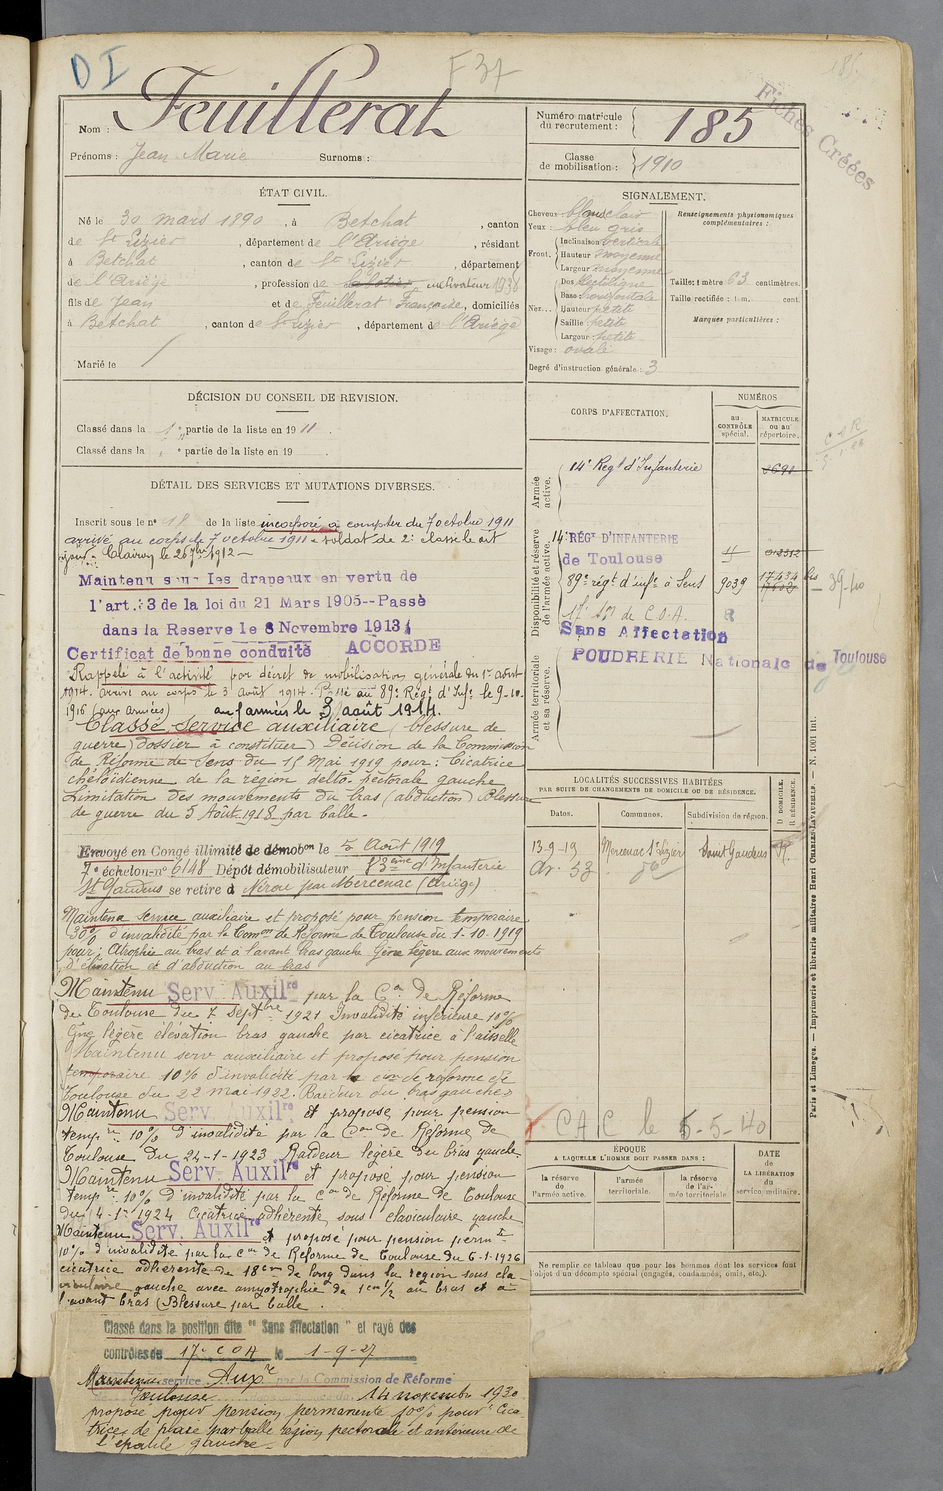 D I
F 37
185
Fiches Créées
Nom : Feuillerat
Prénoms : Jean Marie Surnoms :
Numéro matricule du recrutement : 185
Classe de mobilisation : 1910
ÉTAT CIVIL.
Né le 30 mars 1890, à Betchat, canton
de St Lizier, département de l'Ariège, résidant
à Betchat, canton de St Lizier, département
de l'Ariège, profession de cultivateur 1936
fils de Jean et de Feuillerat Françoise, domiciliés
à Betchat, canton de St Lizier, département de l'Ariège
Marié le
SIGNALEMENT.
Cheveux blond clair
Yeux : bleu gris
Front. Inclinaison verticale
Hauteur moyenne
Largeur moyenne
Nez... Dos rectiligne
Base horizontale
Hauteur petite
Saillie petite
Largeur : petite
Visage : ovale
Degré d'instruction générale : 3
Renseignements physionomiques complémentaires :
Taille : 1 mètre 63 centimètres.
Taille rectifiée : 1 m. cent.
Marques particulières :
DÉCISION DU CONSEIL DE REVISION.
Classé dans la 1e partie de la liste en 1911.
Classé dans la e partie de la liste en 19 .
DÉTAIL DES SERVICES ET MUTATIONS DIVERSES.
Inscrit sous le n° 18 de la liste incorporé à compter du 7 octobre 1911
arrivé au corps le 7 octobre 1911 soldat de 2e classe le dit
jour. Clairon le 26 7bre 1912
Maintenu sous les drapeaux en vertu de
l'art. 33 de la loi du 21 Mars 1905--Passé
dans la Reserve le 8 Novembre 1913
Certificat de bonne conduite ACCORDE
Rappelé à l'activité par décret de mobilisation générale du 1er août
1914. arrivé au corps le 3 août 1914. Passé au 89e Régt d'Infie le 9-10-
1916 (aux armées) aux armées le 3 août 1914.
Classé Service auxiliaire (blessure de
guerre) dossier à constituer) Décision de la Commission
de Réforme de Sens du 15 Mai 1919 pour : Cicatrice
chéloïdienne de la région delto-pectorale gauche
Limitation des mouvements du bras (abduction) Blessure
de guerre du 5 Août 1918 par balle.
Envoyé en Congé illimité de démobon le Août 1919
7e échelon n° 6148 Dépôt démobilisateur 83ème d'Infanterie
St Gaudens se retire à Nérou par Mercenac (Ariège)
Maintenu Service auxiliaire et proposé pour pension temporaire
30% d'invalidité par la Comon de Réforme de Toulouse du 1-10-1919
pour : Atrophie au bras et à l'avant bras gauche Gêne légère aux mouvements
d'élévation et d'abduction au bras
Maintenu Serv. Auxilre par la Con de Réforme
de Toulouse du 7 Septbre 1921 Invalidité inférieure 10%
Gne légère élévation bras gauche par cicatrice à l'aisselle
Maintenu serv auxiliaire et proposé pour pension
temporaire 10% d'invalidité par la con de réforme de
Toulouse du 22 mai 1922. Raideur du bras gauche
Maintenu Serv. Auxilre et proposé pour pension
tempre 10% d'invalidité par la Con de Réforme de
Toulouse du 24-1-1923 Raideur légère du bras gauche
Maintenu Serv. Auxilre et proposé pour pension
tempre 10% d'invalidité par la Con de Réforme de Toulouse
du 4-1er 1924 Cicatrice adhérente sous claviculaire gauche
Maintenu Serv. Auxilre et proposé pour pension permte
10% d'invalidité par la con de Réforme de Toulouse du 6-1-1926
cicatrice adhérente de 18 cm de long dans la région sous cla
viculaire gauche avec amyotrophie de 1 cm 1/2 au bras et à
l'avant bras (Blessure par balle.
Classé dans la position dite "Sans affectation" et rayé des
contrôles du 17e COA le 1-9-27
Maintenu service Auxre par la Commission de Réforme
Toulouse 14 novembre 1930
proposé pour pension permanente 10% pour "Cica
trices de plaie par balle région pectorale et antérieure de
l'épaule gauche".
CORPS D'AFFECTATION.
NUMÉROS
au CONTRÔLE spécial.
MATRICULE ou au répertoire.
Armée active.
14e Regt d'Infanterie
Disponibilité et réserve de l'armée active.
14e RÉGt D'INFANTERIE
de Toulouse
89e régt d'infie à Sens 9039 17434 bis 39-40
17e son de C.O.A. R
Sans Affectation
POUDRERIE Nationale de Toulouse
Armée territoriale et sa réserve.
LOCALITÉS SUCCESSIVES HABITÉES
PAR SUITE DE CHANGEMENTS DE DOMICILE OU DE RÉSIDENCE.
Dates.
Communes.
Subdivision de région.
D DOMICILE.
R RÉSIDENCE.
13-9-19 Mercenac St Lizier Saint Gaudens R.
Av. 53
CAC le 5-5-40
ÉPOQUE
A LAQUELLE L'HOMME DOIT PASSER DANS :
la réserve de l'armée active.
l'armée territoriale.
la réserve de l'armée territoriale.
DATE
de
LA LIBÉRATION
du
service militaire.
Ne remplir ce tableau que pour les hommes dont les services font
l'objet d'un décompte spécial (engagés, condamnés, omis, etc.).
Paris et Limoges. — Imprimerie et librairie militaires Henri CHARLES-LAVAUZELLE. — N. 1001 int.